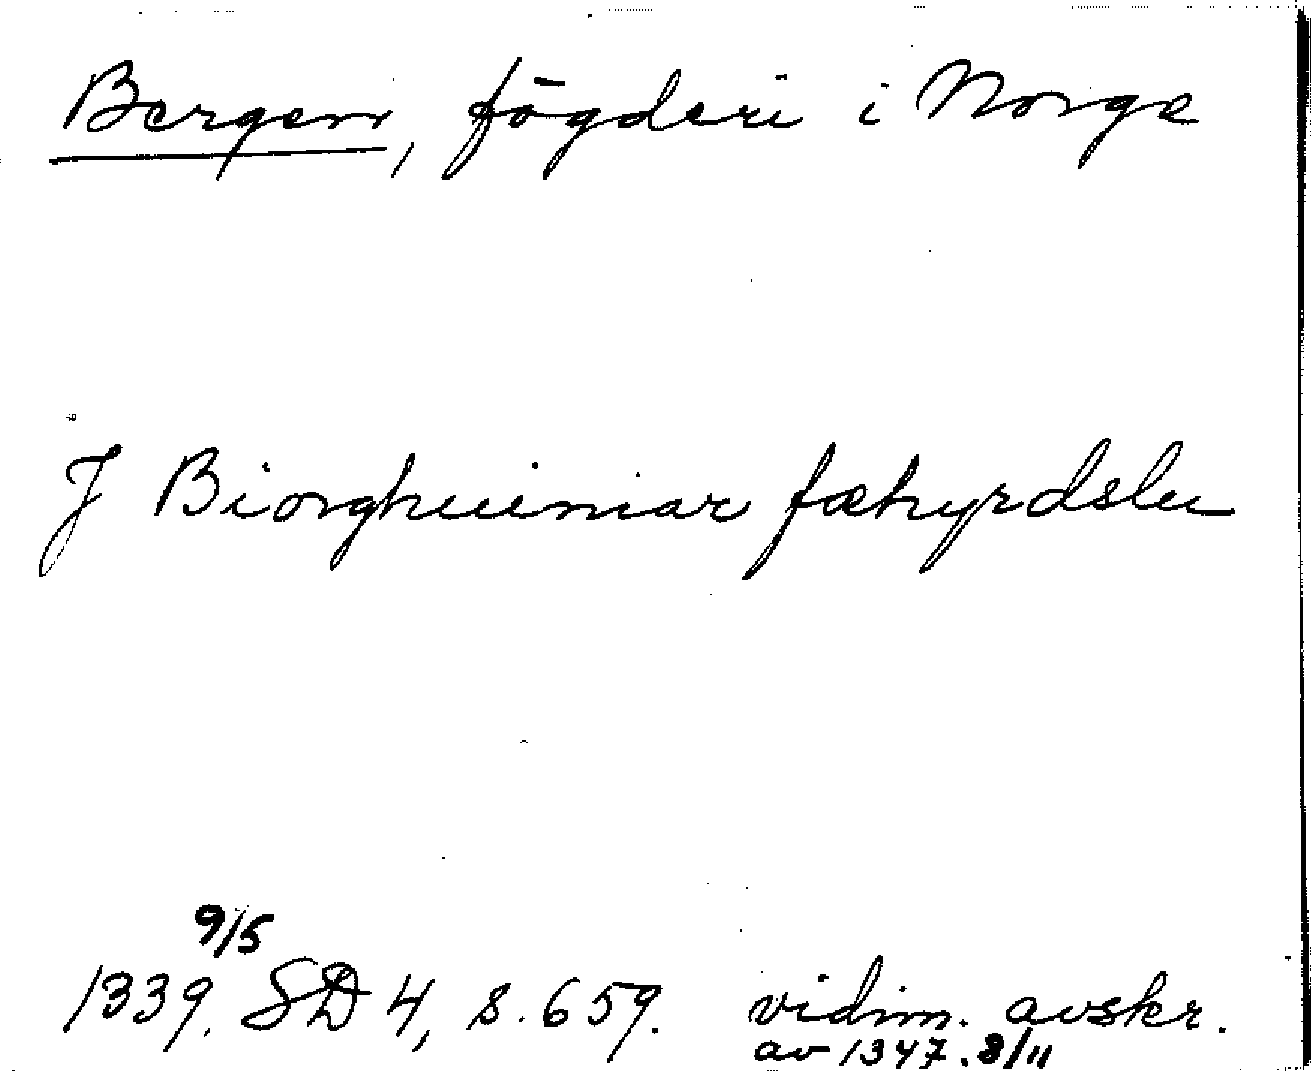 Bergen, fögderi i Norge
J Biorghuiniar fæhyrdslu
9/5
1339. SD 4, s. 659. vidim. avskr.
av 1347. 8/11